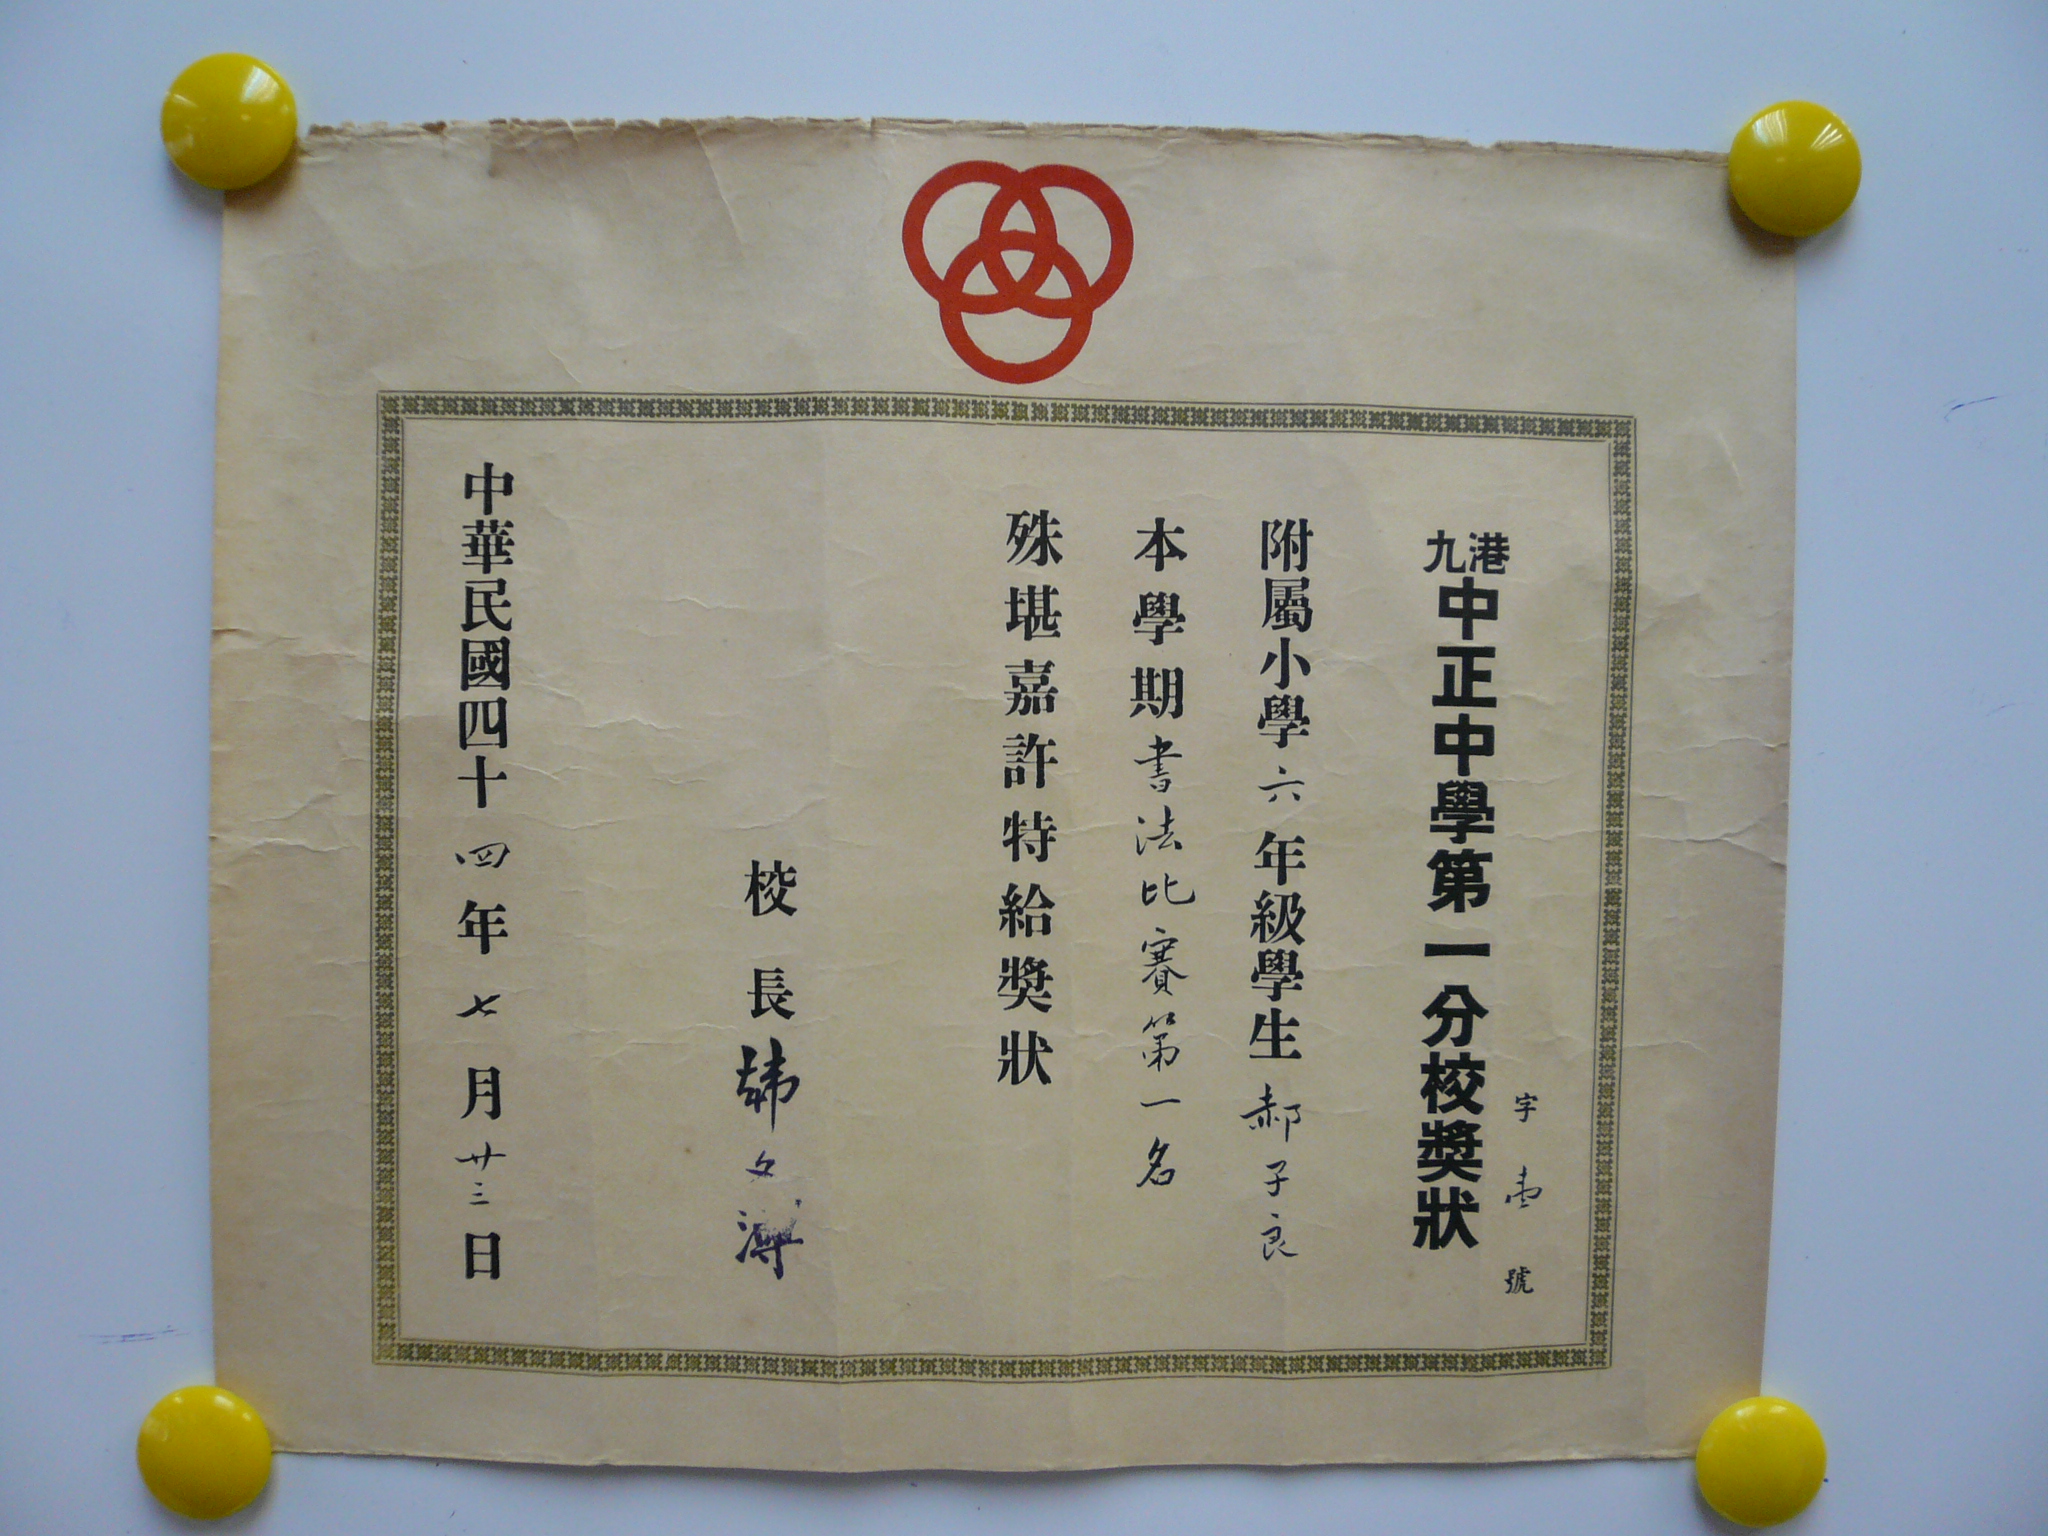 港九中正中學第一分校獎狀
字壹號
附屬小學六年級學生郝子良
本學期書法比賽第一名
殊堪嘉許特給獎狀
校長韓文溥
中華民國四十四年七月廿三日